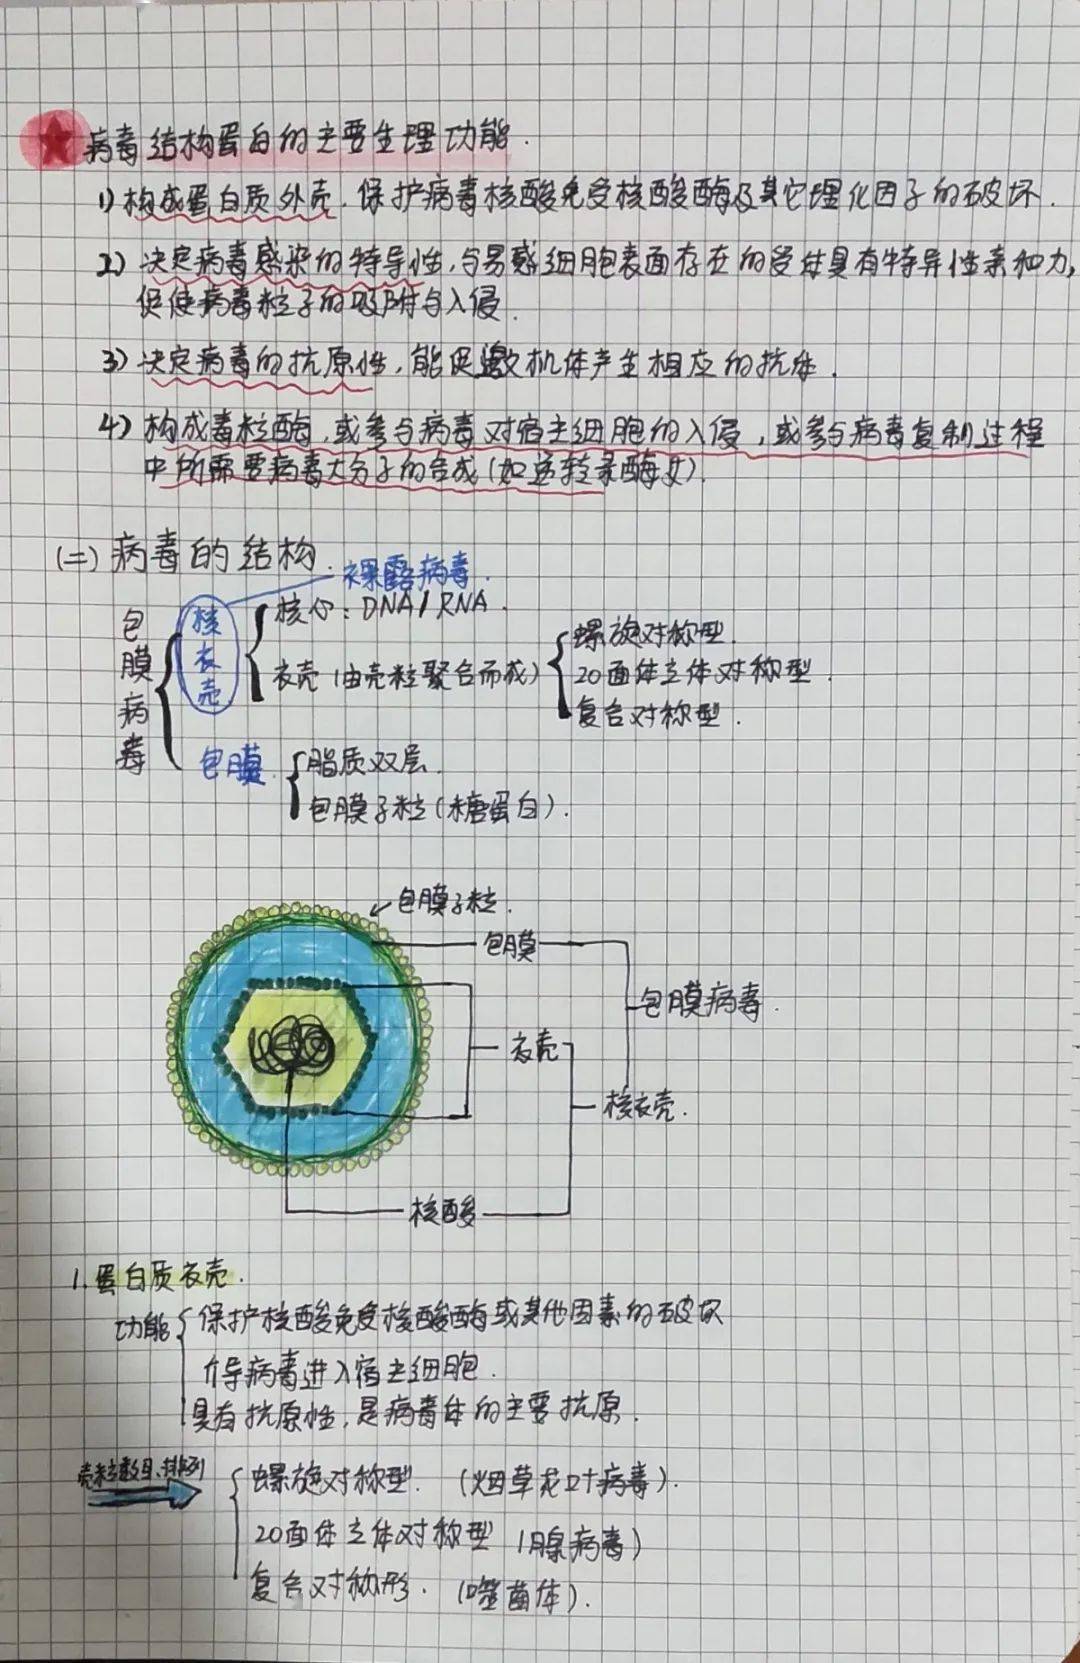 病毒结构蛋白的主要生理功能.
1) 构成蛋白质外壳,保护病毒核酸免受核酸酶及其它理化因子的破坏.
2) 决定病毒感染的特异性,与易感细胞表面存在的受体具有特异性亲和力,
促使病毒粒子的吸附与入侵.
3) 决定病毒的抗原性,能促激机体产生相应的抗体.
4) 构成毒粒酶,或参与病毒对宿主细胞的入侵,或参与病毒复制过程
中所需要病毒大分子的合成(如逆转录酶).
(二) 病毒的结构.
裸露病毒.
包膜病毒
核衣壳
核心: DNA/RNA.
衣壳(由壳粒聚合而成)
螺旋对称型.
20面体立体对称型.
复合对称型.
包膜
脂质双层.
包膜子粒(糖蛋白).
包膜子粒.
包膜
包膜病毒.
衣壳
核衣壳.
核酸
1. 蛋白质衣壳.
功能
保护核酸免受核酸酶或其他因素的破坏
介导病毒进入宿主细胞.
具有抗原性,是病毒体的主要抗原.
壳粒数目、排列
螺旋对称型. (烟草花叶病毒).
20面体立体对称型 (腺病毒)
复合对称形. (噬菌体).